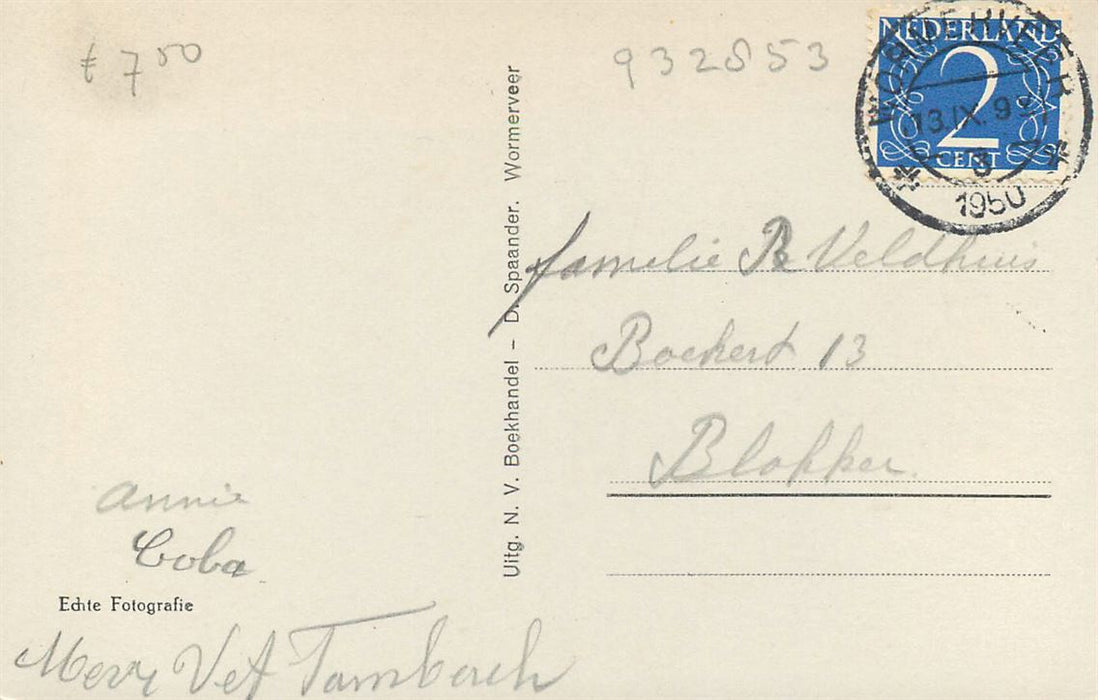 € 7 50
932853
NEDERLAND
2
CENT
WORMERVEER
13.IX. 9
3
1950
familie R Veldhuis
Boekert 13
Blokker.
Uitg. N. V. Boekhandel – D. Spaander. Wormerveer
Annie
Coba
Echte Fotografie
Mevr Vet